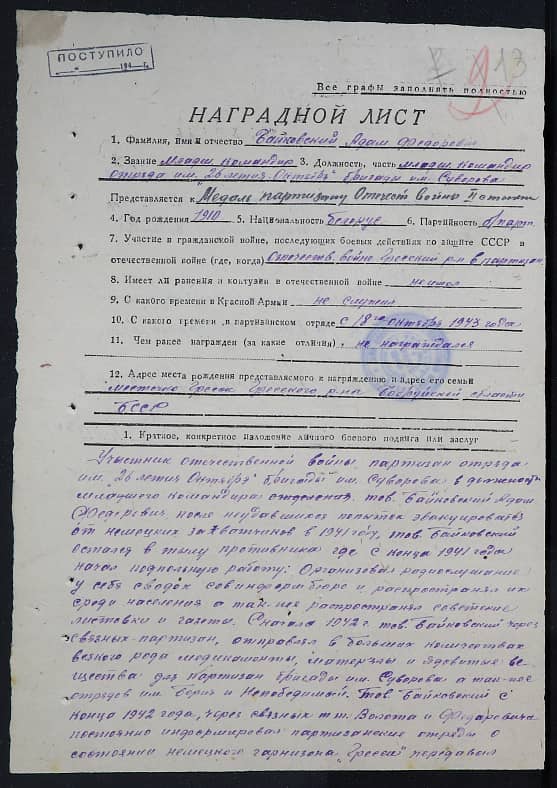 ПОСТУПИЛО
194 г.
13
Все графы заполнять полностью
НАГРАДНОЙ ЛИСТ
1. Фамилия, имя и отчество Байковский Адам Федорович
2. Звание Младш командир 3. Должность, часть младш командир
отряда им. 26 летия Октября бригады им. Суворова
Представляется к Медаль партизану Отечест войны II степени
4. Год рождения 1910 5. Национальность белорус 6. Партийность б/парт.
7. Участие в гражданской войне, последующих боевых действиях по защите СССР в
отечественной войне (где, когда) Отечеств. войне Гресский р-н в партизан
8. Имеет ли ранения и контузии в отечественной войне не имел
9. С какого времени в Красной Армии не служил
10. С какого времени в партизанском отряде с 18го октября 1943 года
11. Чем ранее награжден (за какие отличия) не награждался
12. Адрес места рождения представляемого к награждению и адрес его семьи
местечко Греск Гресского р-на Бобруйской области
БССР
1. Краткое, конкретное изложение личного боевого подвига или заслуг
Участник отечественной войны, партизан отряда
им. 26 летия Октября бригады им. Суворова в должности
младшего командира отделения тов. Байковский Адам
Федорович после неудавшихся попыток эвакуироваться
от немецких захватчиков в 1941 году, тов. Байковский
остался в тылу противника где с конца 1941 года
начал подпольную работу: Организовал радиослушание
у себя сводок совинформбюро и распространял их
среди населения а так-же распространял советские
листовки и газеты. С начала 1942 г. тов. Байковский через
связных-партизан, отправлял в больших количествах
всякого рода медикаменты, материалы и ядовитые ве-
щества для партизан бригады им. Суворова а так-же
отрядов им. и Непобедимый. Тов. Байковский с
конца 1942 года, через связных т.т. Волота и Федоровича
постоянно информировал партизанские отряды о
состоянии немецкого гарнизона "Гресск" передавал